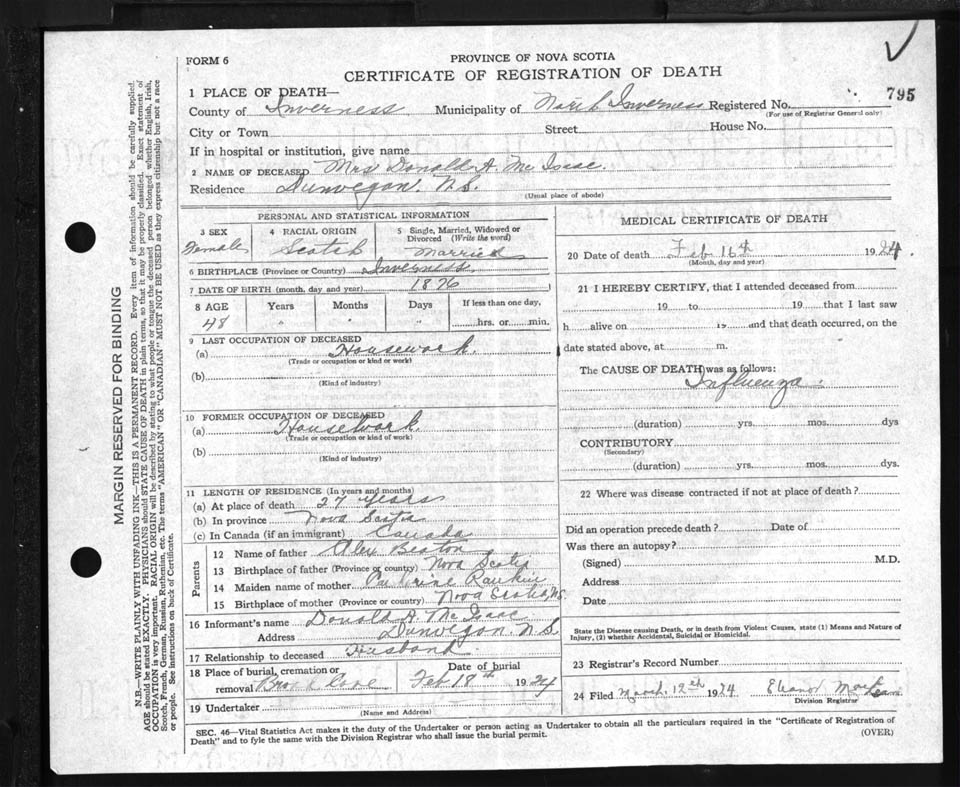 FORM 6
PROVINCE OF NOVA SCOTIA
CERTIFICATE OF REGISTRATION OF DEATH
795
1 PLACE OF DEATH—
County of Inverness Municipality of North Inverness Registered No.
(For use of Registrar General only)
City or Town Street House No.
If in hospital or institution, give name
2 NAME OF DECEASED Mrs Donald A. Mc Isaac.
Residence Dunvegan. N.S.
(Usual place of abode)
PERSONAL AND STATISTICAL INFORMATION
3 SEX
Female
4 RACIAL ORIGIN
Scotch
5 Single, Married, Widowed or Divorced (Write the word)
Married
6 BIRTHPLACE (Province or Country) Inverness
7 DATE OF BIRTH (month, day and year) 1876
8 AGE Years Months Days If less than one day,
48 " " hrs. or min.
9 LAST OCCUPATION OF DECEASED
(a) Housework.
(Trade or occupation or kind or work)
(b)
(Kind of industry)
10 FORMER OCCUPATION OF DECEASED
(a) Housework.
(Trade or occupation or kind of work)
(b)
(Kind of industry)
11 LENGTH OF RESIDENCE (In years and months)
(a) At place of death 27 years
(b) In province Nova Scotia
(c) In Canada (if an immigrant) Canada
Parents
12 Name of father Alex Beaton
13 Birthplace of father (Province or country) Nova Scotia
14 Maiden name of mother Rankin
15 Birthplace of mother (Province or country) Nova Scotia, N.S.
16 Informant's name Donald A McIsaac
Address Dunvegan. N.S.
17 Relationship to deceased Husband
18 Place of burial, cremation or removal Date of burial
Feb 18th 1924
19 Undertaker
(Name and Address)
MEDICAL CERTIFICATE OF DEATH
20 Date of death Feb 16th 1924.
(Month, day and year)
21 I HEREBY CERTIFY, that I attended deceased from
19 to 19 that I last saw
h alive on 19 and that death occurred, on the
date stated above, at m.
The CAUSE OF DEATH was as follows:
Influenza.
(duration) yrs. mos. dys
CONTRIBUTORY
(Secondary)
(duration) yrs. mos. dys.
22 Where was disease contracted if not at place of death?
Did an operation precede death? Date of
Was there an autopsy?
(Signed) M.D.
Address
Date
State the Disease causing Death, or in death from Violent Causes, state (1) Means and Nature of
Injury, (2) whether Accidental, Suicidal or Homicidal.
23 Registrar's Record Number
24 Filed March. 12th 1924 Eleanor
Division Registrar
SEC. 46—Vital Statistics Act makes it the duty of the Undertaker or person acting as Undertaker to obtain all the particulars required in the "Certificate of Registration of
Death" and to fyle the same with the Division Registrar who shall issue the burial permit.
(OVER)
MARGIN RESERVED FOR BINDING
N.B.—WRITE PLAINLY WITH UNFADING INK—THIS IS A PERMANENT RECORD. Every item of information should be carefully supplied.
AGE should be stated EXACTLY. PHYSICIANS should STATE CAUSE OF DEATH in plain terms, so that it may be properly classified. Exact statement of
OCCUPATION is very important. RACIAL ORIGIN will be described by stating to what people or tongue the deceased person belonged whether English, Irish,
Scotch, French, German, Russian, Ruthenian, etc. The terms "AMERICAN" OR "CANADIAN" MUST NOT BE USED as they express citizenship but not a race
or people. See instructions on back of Certificate.